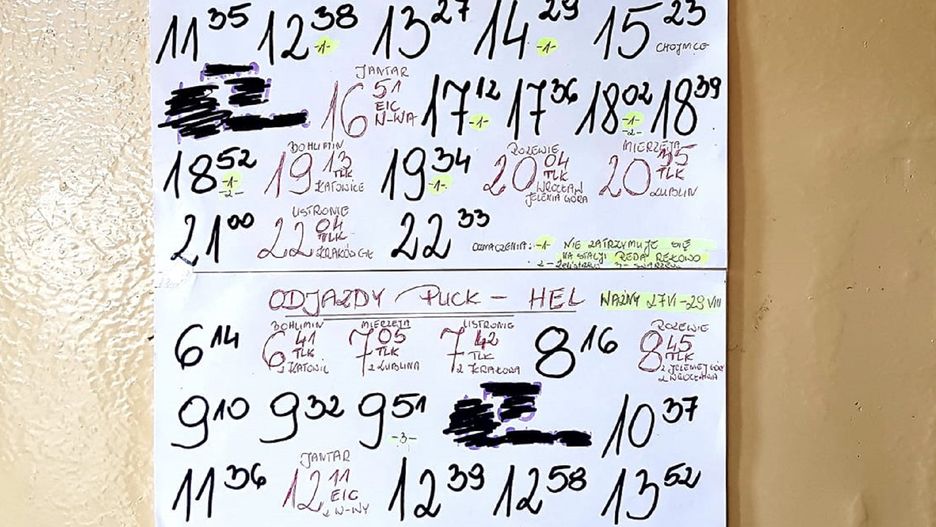 11 35 12 38 -1- 13 27 14 29 -1- 15 23 CHOJNICE
JANTAR 16 51 EIC W-WA 17 12 -1- 17 36 18 02 -1- -2- 18 39
18 52 -1- -2- BOHUMIN 19 13 TLK KATOWICE 19 34 -1- ROZEWIE 20 04 TLK WROCŁAW JELENIA GÓRA MIERZEJA 20 TLK LUBLIN
21 00 USTRONIE 22 04 TLK KRAKÓW GŁ 22 33 OZNACZENIA: -1- NIE ZATRZYMUJE SIĘ
NA STACJI REDA REKOWO
ODJAZDY PUCK - HEL WAŻNY 27 VI - 29 VIII
6 14 BOHUMIN 6 41 TLK Z KATOWIC MIERZEJA 7 05 TLK Z LUBLINA USTRONIE 7 42 TLK Z KRAKOWA 8 16 ROZEWIE 8 45 TLK Z JELENIEJ GÓRY Z WROCŁAWIA
9 10 9 32 9 51 -3- 10 37
11 36 JANTAR 12 11 EIC Z W-WY 12 39 12 58 13 52